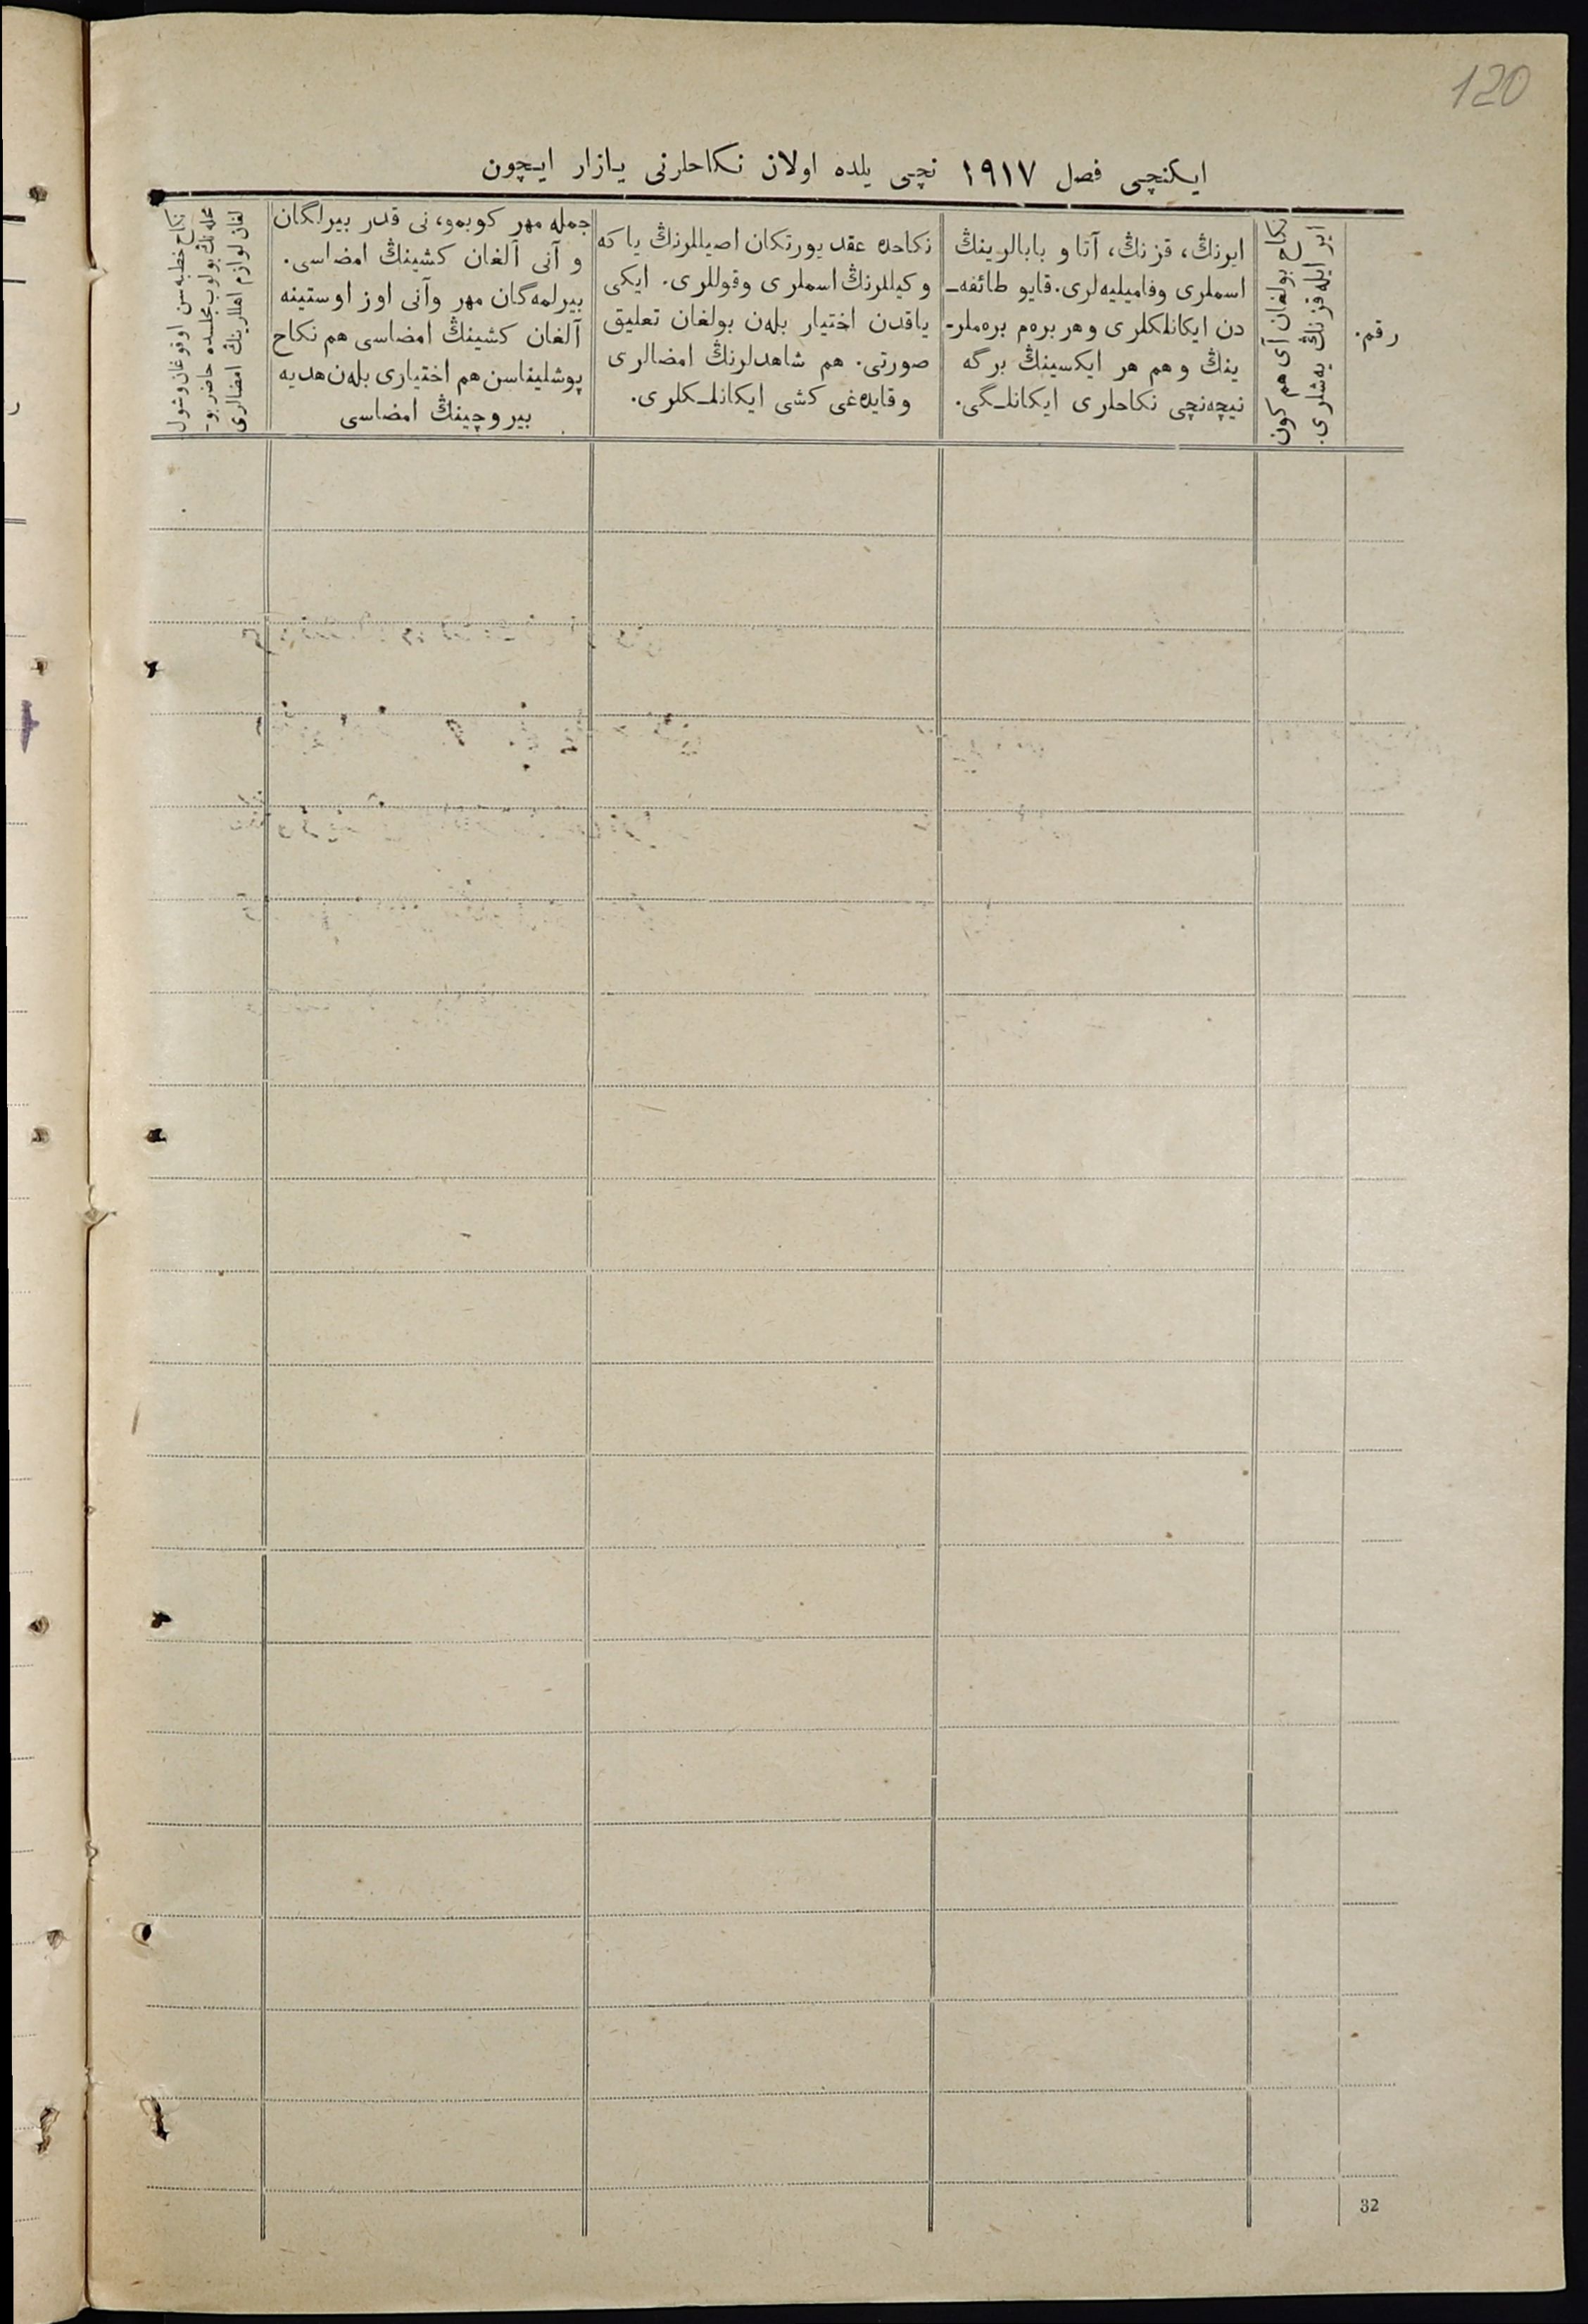 120
ایکنچی فصل ۱۹۱۷ نچی یلده اولان نکاحلرنی یازار ایچون
رقم.
نکاح بولغان آی هم کون
ایر ایله قزنڭ یه‌شلری.
ایرنڭ، قزنڭ، آتا و بابالرینڭ
اسملری وفامیلیه‌لری. قایو طائفه‌ـ
دن ایکانلکلری و هر بره‌م بره‌ملرـ
ینڭ و هم هر ایکسینڭ بر گه
نیچه‌نچی نکاحلری ایکانلـگی.
نکاحده عقد یورتکان اصیللرنڭ یا که
وکیللرنڭ اسملری وقوللری. ایکی
یاقدن اختیار بله‌ن بولغان تعلیق
صورتی. هم شاهدلرنڭ امضالری
و قایده‌غی کشی ایکانلـکلری.
جمله مهر کوبمو، نی قدر بیرلگان
و آنی آلغان کشینڭ امضاسی.
بیرلمه‌گان مهر وآنی اوز اوستینه
آلغان کشینڭ امضاسی هم نکاح
پوشلیناسن هم اختیاری بله‌ن هدیه
بیر وچینڭ امضاسی
نکاح خطبه‌سن اوقوغان وشول
محله‌نڭ بولوب مجلسده حاضر بوـ
لغان لوازم اهللرینڭ امضالری
32